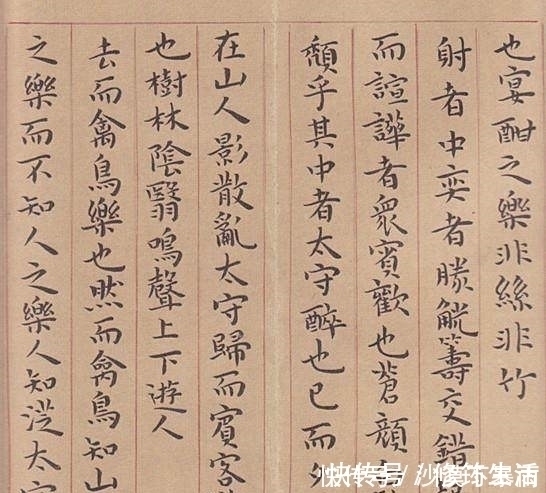 也宴酣之樂非絲非竹
射者中奕者勝觥籌交錯
而諠譁者衆賓歡也蒼顏
頹乎其中者太守醉也已而夕
在山人影散亂太守歸而賓客
也樹林陰翳鳴聲上下遊人
去而禽鳥樂也然而禽鳥知山
之樂而不知人之樂人知從太守
快传号/
生活